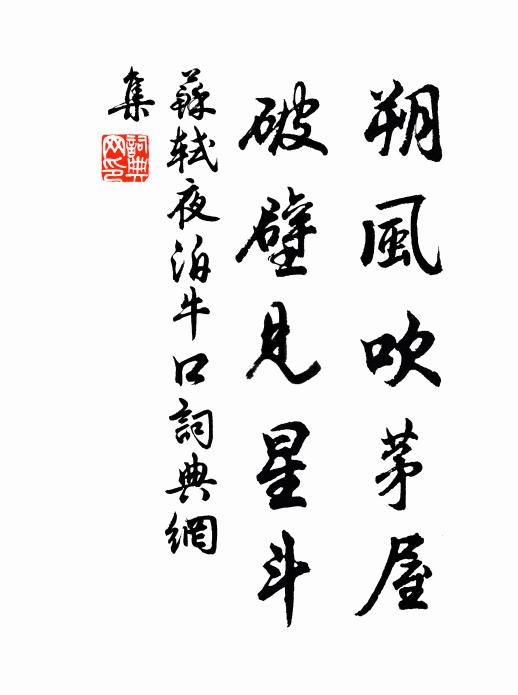 朔風吹茅屋
破壁見星斗
蘇軾夜泊牛口詞典網
集
詞典網印